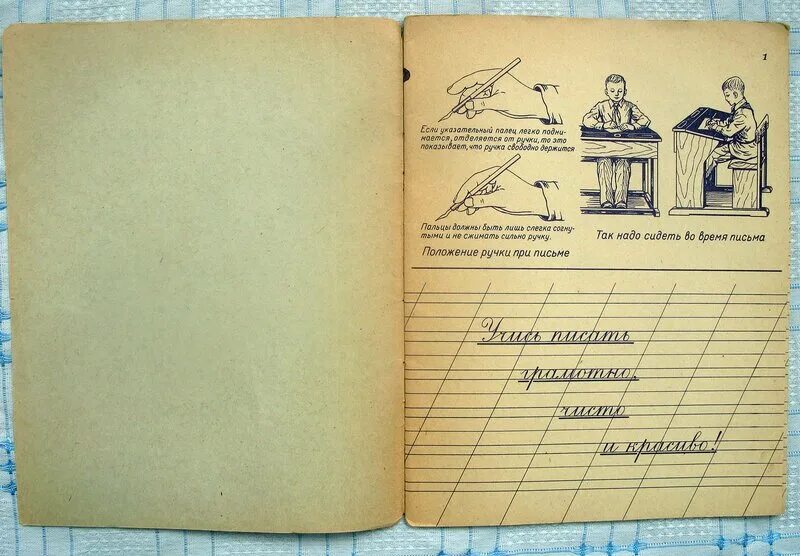 1
Если указательный палец легко подни-
мается, отделяется от ручки, то это
показывает, что ручка свободно держится
Пальцы должны быть лишь слегка согну-
тыми и не сжимать сильно ручку.
Положение ручки при письме
Так надо сидеть во время письма
Учись писать
грамотно,
чисто
и красиво!